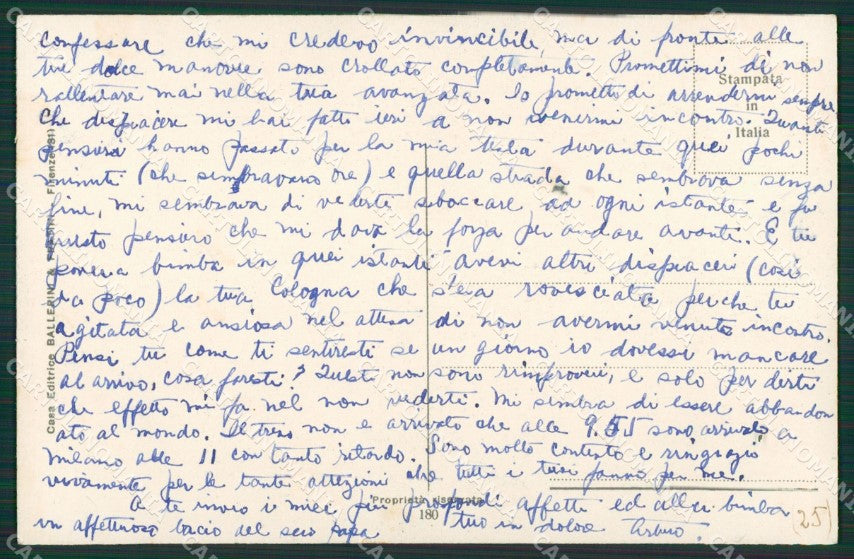 confessare che mi credevo invincibile, ma di fronte alle
tue dolce manovre sono crollato completamente. Promettimi di non
rallentare mai nella tua avanzata. Io prometto di arrendermi sempre
Che dispiacere mi hai fatto ieri a non venirmi incontro. Quanti
pensieri hanno passato per la mia testa durante quei pochi
minuti (che sembravano ore) e quella strada che sembrava senza
fine, mi sembrava di vederti sboccare ad ogni istante e fu
questo pensiero che mi dava la forza per andare avanti. E tu
povera bimba in quei istanti avevi altri dispiaceri (cosi
da poco) la tua Cologna che s'era rovesciata perche tu
agitata e ansiosa nel attesa di non avermi venuto incontro.
Pensi tu come ti sentiresti se un giorno io dovessi mancare
al arrivo, cosa faresti? Questi non sono rimproveri, e solo per dirti
che effetto mi fa nel non vederti. Mi simbra di essere abbandon
ato al mondo. Il treno non e arrivato che alle 9.55 sono arrivato a
Milano alle 11 con tanto ritardo. Sono molto contento e ringrazio
vivamente per le tante attezioni che tutti i tuoi fanno per me.
A te invio i miei piu profondi affetti ed alla bimba
un affettuoso bacio del suo papa
tuo in dolore Arturo.
Stampata
in
Italia
Casa Editrice BALLERINI & FRATINI - Firenze (31)
Proprietà riservata
180
25
CARTOLINOMANIA